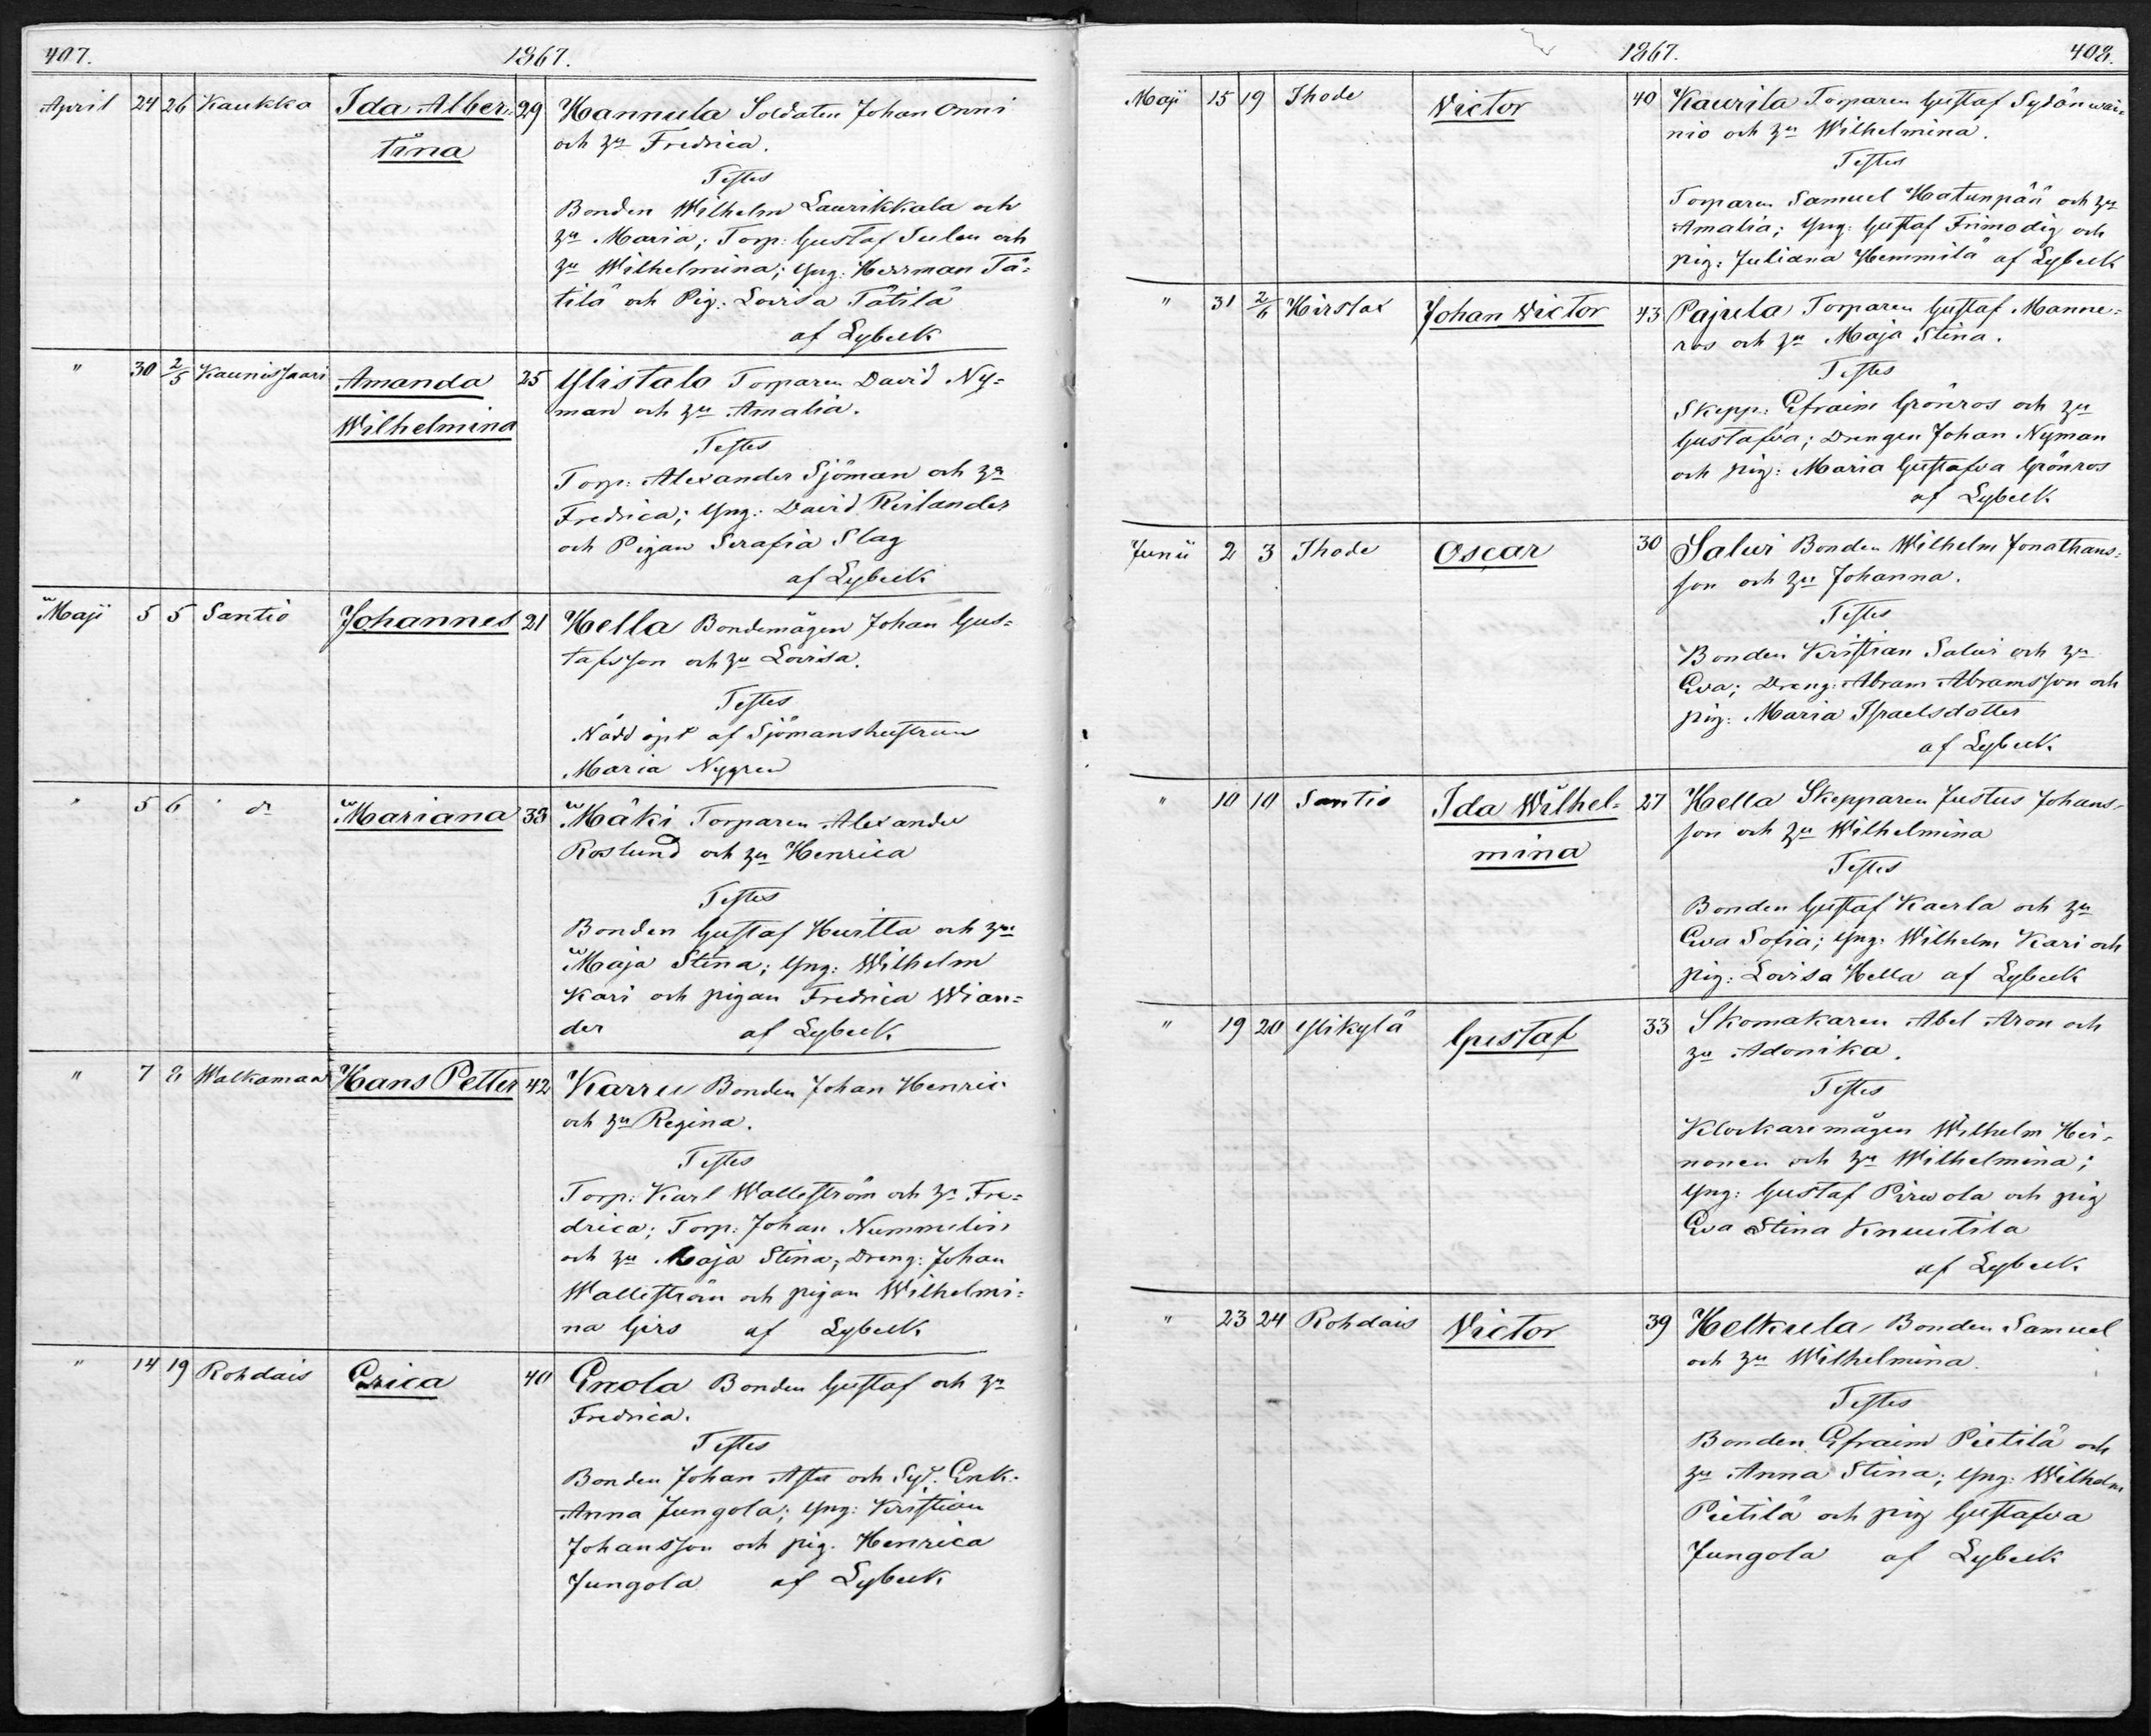 407.
1867.
April 24 26 Kaukka Ida Alber- 29 Hannula Soldaten Johan Onni
tina och hu Fredrica.
Testes
Bonden Wilhelm Laurikkala och
hu Maria; Torp: Gustaf Tulen och
hu Wilhelmina; Yng: Herrman Tä=
tilä och Pig: Lovisa Tätilä
af Lybeck
" 30 2/5 Kaunissaari Amanda 25 Ylistalo Torparen David Ny=
Wilhelmina man och hu Amalia.
Testes
Torp: Alexander Sjöman och hu
Fredrica; Yng: David Reilander
och Pigan Serafia Slag
af Lybeck
Maji 5 5 Santio Johannes 21 Hella Bondemågen Johan Gus=
tafsson och hu Lovisa.
Testes
Nöddöpt af Sjömanshustrun
Maria Nygren
" 5 6 do Mariana 33 Mäki Torparen Alexander
Roslund och hu Henrica
Testes
Bonden Gustaf Huitta och hu
Maja Stina; Yng: Wilhelm
Kari och pigan Fredrica Wian=
der af Lybeck
" 7 8 Walkamaa Hans Petter 42 Karru Bonden Johan Henric
och hu Regina.
Testes
Torp: Karl Walleström och hu Fre=
drica; Torp: Johan Nummelin
och hu Maja Stina; Dreng: Johan
Walleström och pigan Wilhelmi=
na Girs af Lybeck
" 14 19 Rohdais Erica 40 Erola Bonden Gustaf och hu
Fredrica.
Testes
Bonden Johan och Syt. Enk.
Anna Jungola; Yng: Kristian
Johansson och pig. Henrica
Jungola af Lybeck
1867.
408.
Maji 15 19 Ihode Victor 40 Kaurila Torparen Gustaf Sydänwäi=
nio och hu Wilhelmina.
Testes
Torparen Samuel Hatunpää och hu
Amalia; Yng: Gustaf Frimodig och
pig: Juliana Hemmilä af Lybeck
" 31 2/6 Hirslax Johan Victor 43 Pajula Torparen Gustaf Manne=
ros och hu Maja Stina.
Testes
Skepp: Efraim Grönros och hu
Gustafva; Drengen Johan Nyman
och pig: Maria Gustafva Grönros
af Lybeck
Junii 2 3 Ihode Oscar 30 Salmi Bonden Wilhelm Jonathans=
son och hu Johanna.
Testes
Bonden Kristian Salmi och hu
Eva; Dreng: Abram Abramsson och
pig: Maria Israelsdotter
af Lybeck
" 10 10 Santio Ida Wilhel= 27 Hella Skepparen Justus Johans-
mina son och hu Wilhelmina
Testes
Bonden Gustaf Kaerla och hu
Eva Sofia; Yng: Wilhelm Kari och
pig: Lovisa Hella af Lybeck
" 19 20 Ylikylä Gustaf 33 Skomakaren Abel Aron och
hu Adonika.
Testes
Klockaremågen Wilhelm Hei-
nonen och hu Wilhelmina;
Yng: Gustaf Pirwola och pig
Eva Stina Knuutila
af Lybeck
" 23 24 Rohdais Victor 39 Helkula Bonden Samuel
och hu Wilhelmina.
Testes
Bonden Efraim Pietilä och
hu Anna Stina; Yng: Wilhelm
Pietilä och pig Gustafva
Jungola af Lybeck